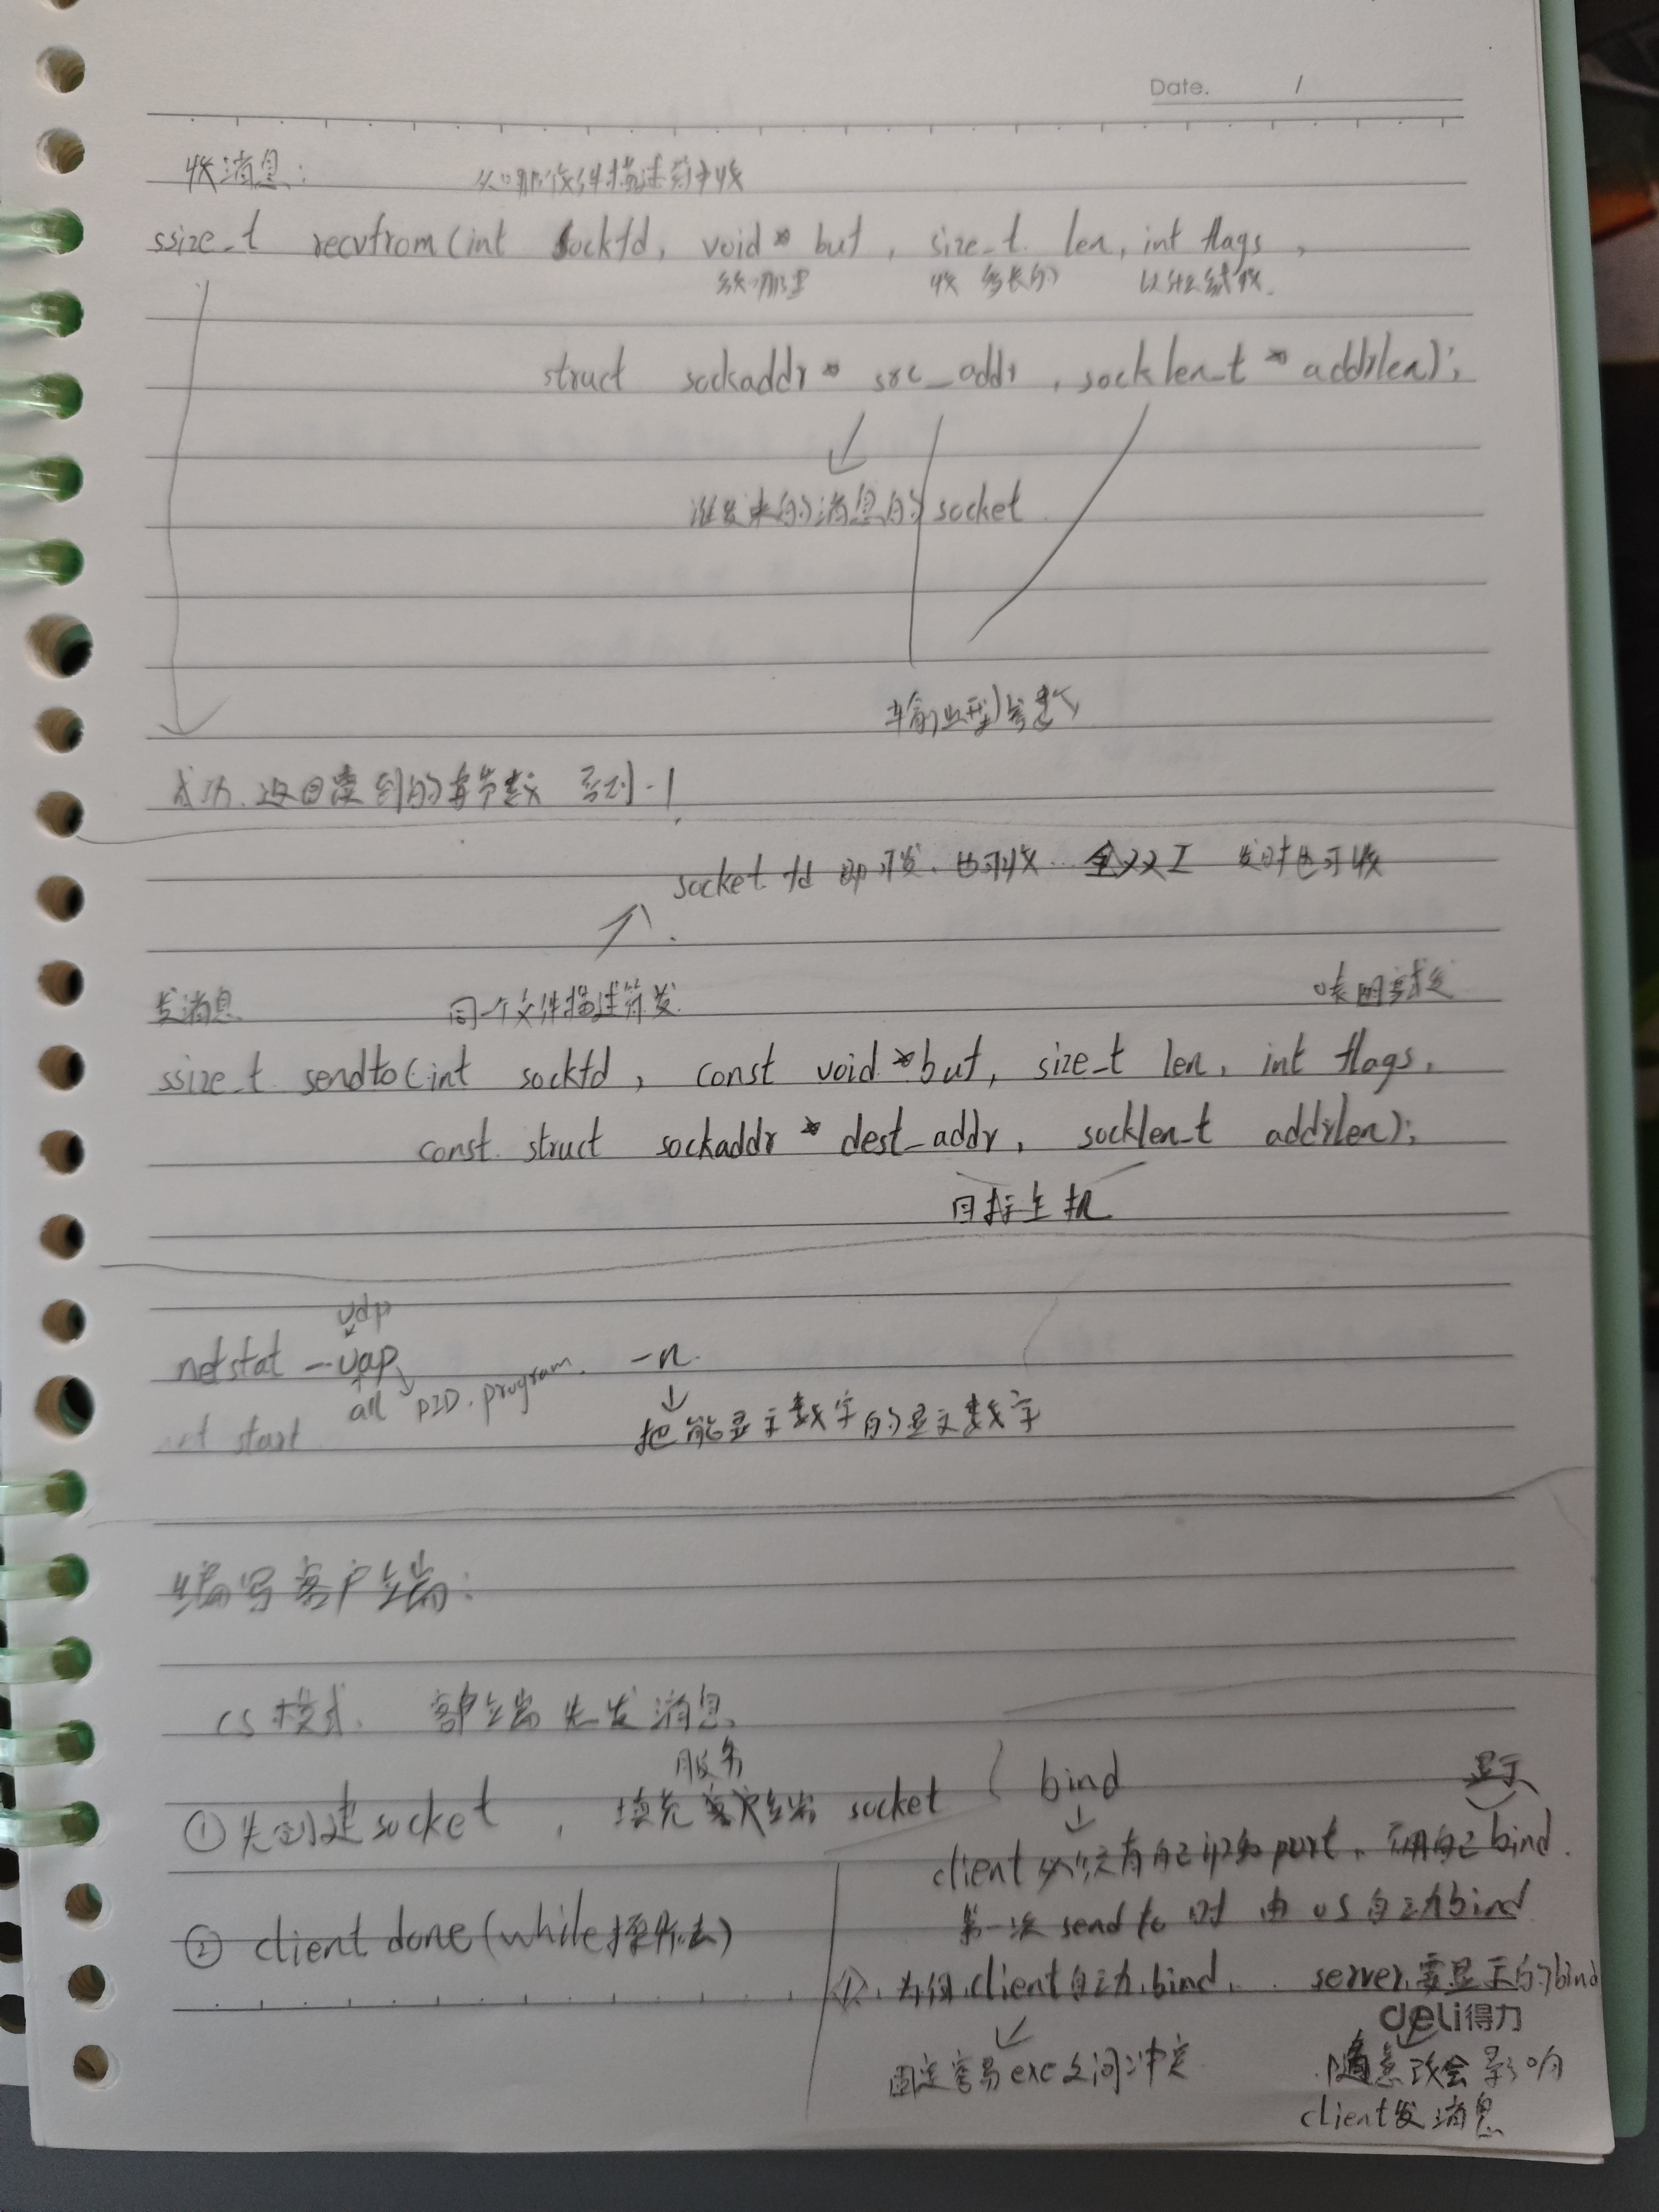 Date. /
收消息: 从哪个文件描述符中收
ssize_t recvfrom(int sockfd, void* buf, size_t len, int flags,
放哪里 收多长的 以什么方式收.
struct sockaddr* src_addr, socklen_t* addrlen);
谁发来的消息的socket
输出型参数
成功.返回读到的字节数 否则-1
socket fd 即可发、也可收.. 全双工 发时也可收
发消息 同一个文件描述符发
ssize_t sendto(int sockfd, const void*buf, size_t len, int flags,
const struct sockaddr* dest_addr, socklen_t addrlen);
目标主机
udp
netstat -uap -n.
all PID.program.
net start 把能显示数字的显示数字
编写客户端:
CS模式. 客户端先发消息
服务
①先创建socket, 填充客户端 socket ( bind 显示
client必须有自己ip和port、不用自己bind.
第一次 send to 时 由 OS自动bind
② client done(while
①.为何client自动bind. server需显示的bind
deli得力
固定容易exe之间冲突 随意改会影响
client发消息